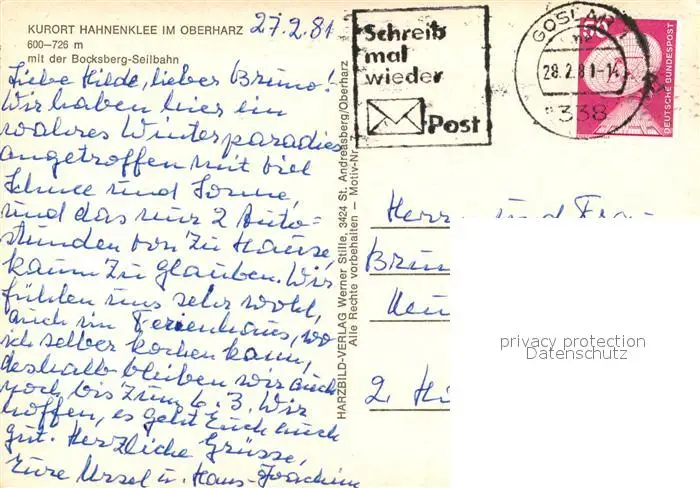 KURORT HAHNENKLEE IM OBERHARZ
600–726 m
mit der Bocksberg-Seilbahn
27.2.81
Liebe Hilde, lieber Bruno!
Wir haben hier ein
wahres Winterparadies
angetroffen mit viel
Schnee und Sonne,
und das nur 2 Auto=
stunden von Zu Hause,
kaum zu glauben. Wir
fühlen uns sehr wohl,
auch im Ferienhaus, wo
ich selber kochen kann,
deshalb bleiben wir auch
noch bis zum 6. 3. Wir
hoffen, es geht Euch auch
gut. Herzliche Grüsse,
Eure Ursel u. Hans-Joachim
HARZBILD-VERLAG Werner Stille, 3424 St. Andreasberg/Oberharz
Alle Rechte vorbehalten – Motiv-Nr. 7
Schreib
mal
wieder
Post
GOSLAR 1
28.2.81-14
338
DEUTSCHE BUNDESPOST
Herrn und Frau
Brun
2 H
privacy protection
Datenschutz